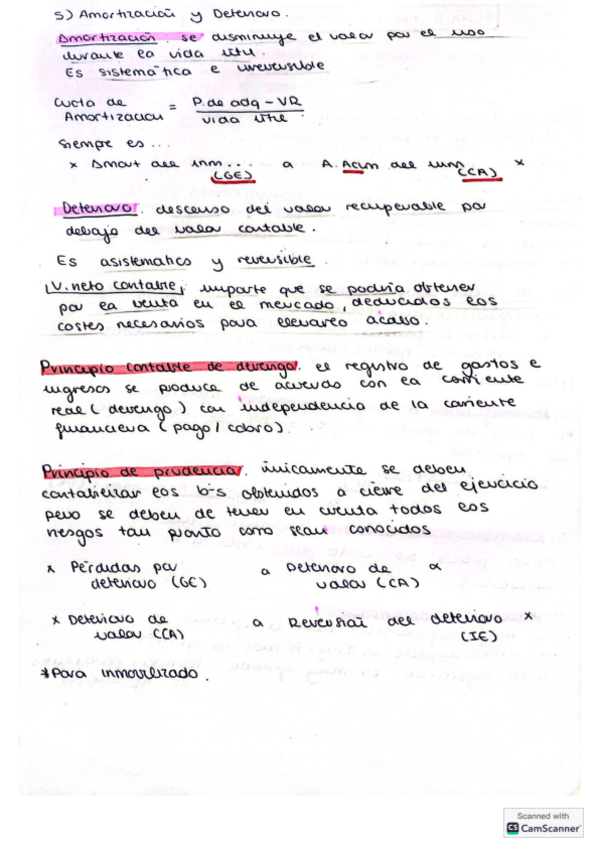 5) Amortización y Deterioro.
Amortización. se disminuye el valor por el uso
durante la vida útil.
Es sistemática e irreversible
Cuota de Amortización = P. de adq - VR / vida útil.
Siempre es...
x Amort del inm... (GE) a A. Acum del inm (CA) x
Deterioro. descenso del valor recuperable por
debajo del valor contable.
Es asistematico y reversible.
V. neto contable, importe que se podría obtener
por la venta en el mercado, deducidos los
costes necesarios para llevarlo acabo.
Principio contable de devengo. el registro de gastos e
ingresos se produce de acuerdo con la corriente
real (devengo) con independencia de la corriente
financiera (pago/cobro).
Principio de prudencia. únicamente se deben
contabilizar los b's obtenidos a cierre del ejercicio
pero se deben de tener en cuenta todos los
riesgos tan pronto como sean conocidos
x Pérdidas por deterioro (GE) a Deterioro de valor (CA) x
x Deterioro de valor (CA) a Reversión del deterioro (IE) x
*Para inmovilizado.
Scanned with
CS CamScanner